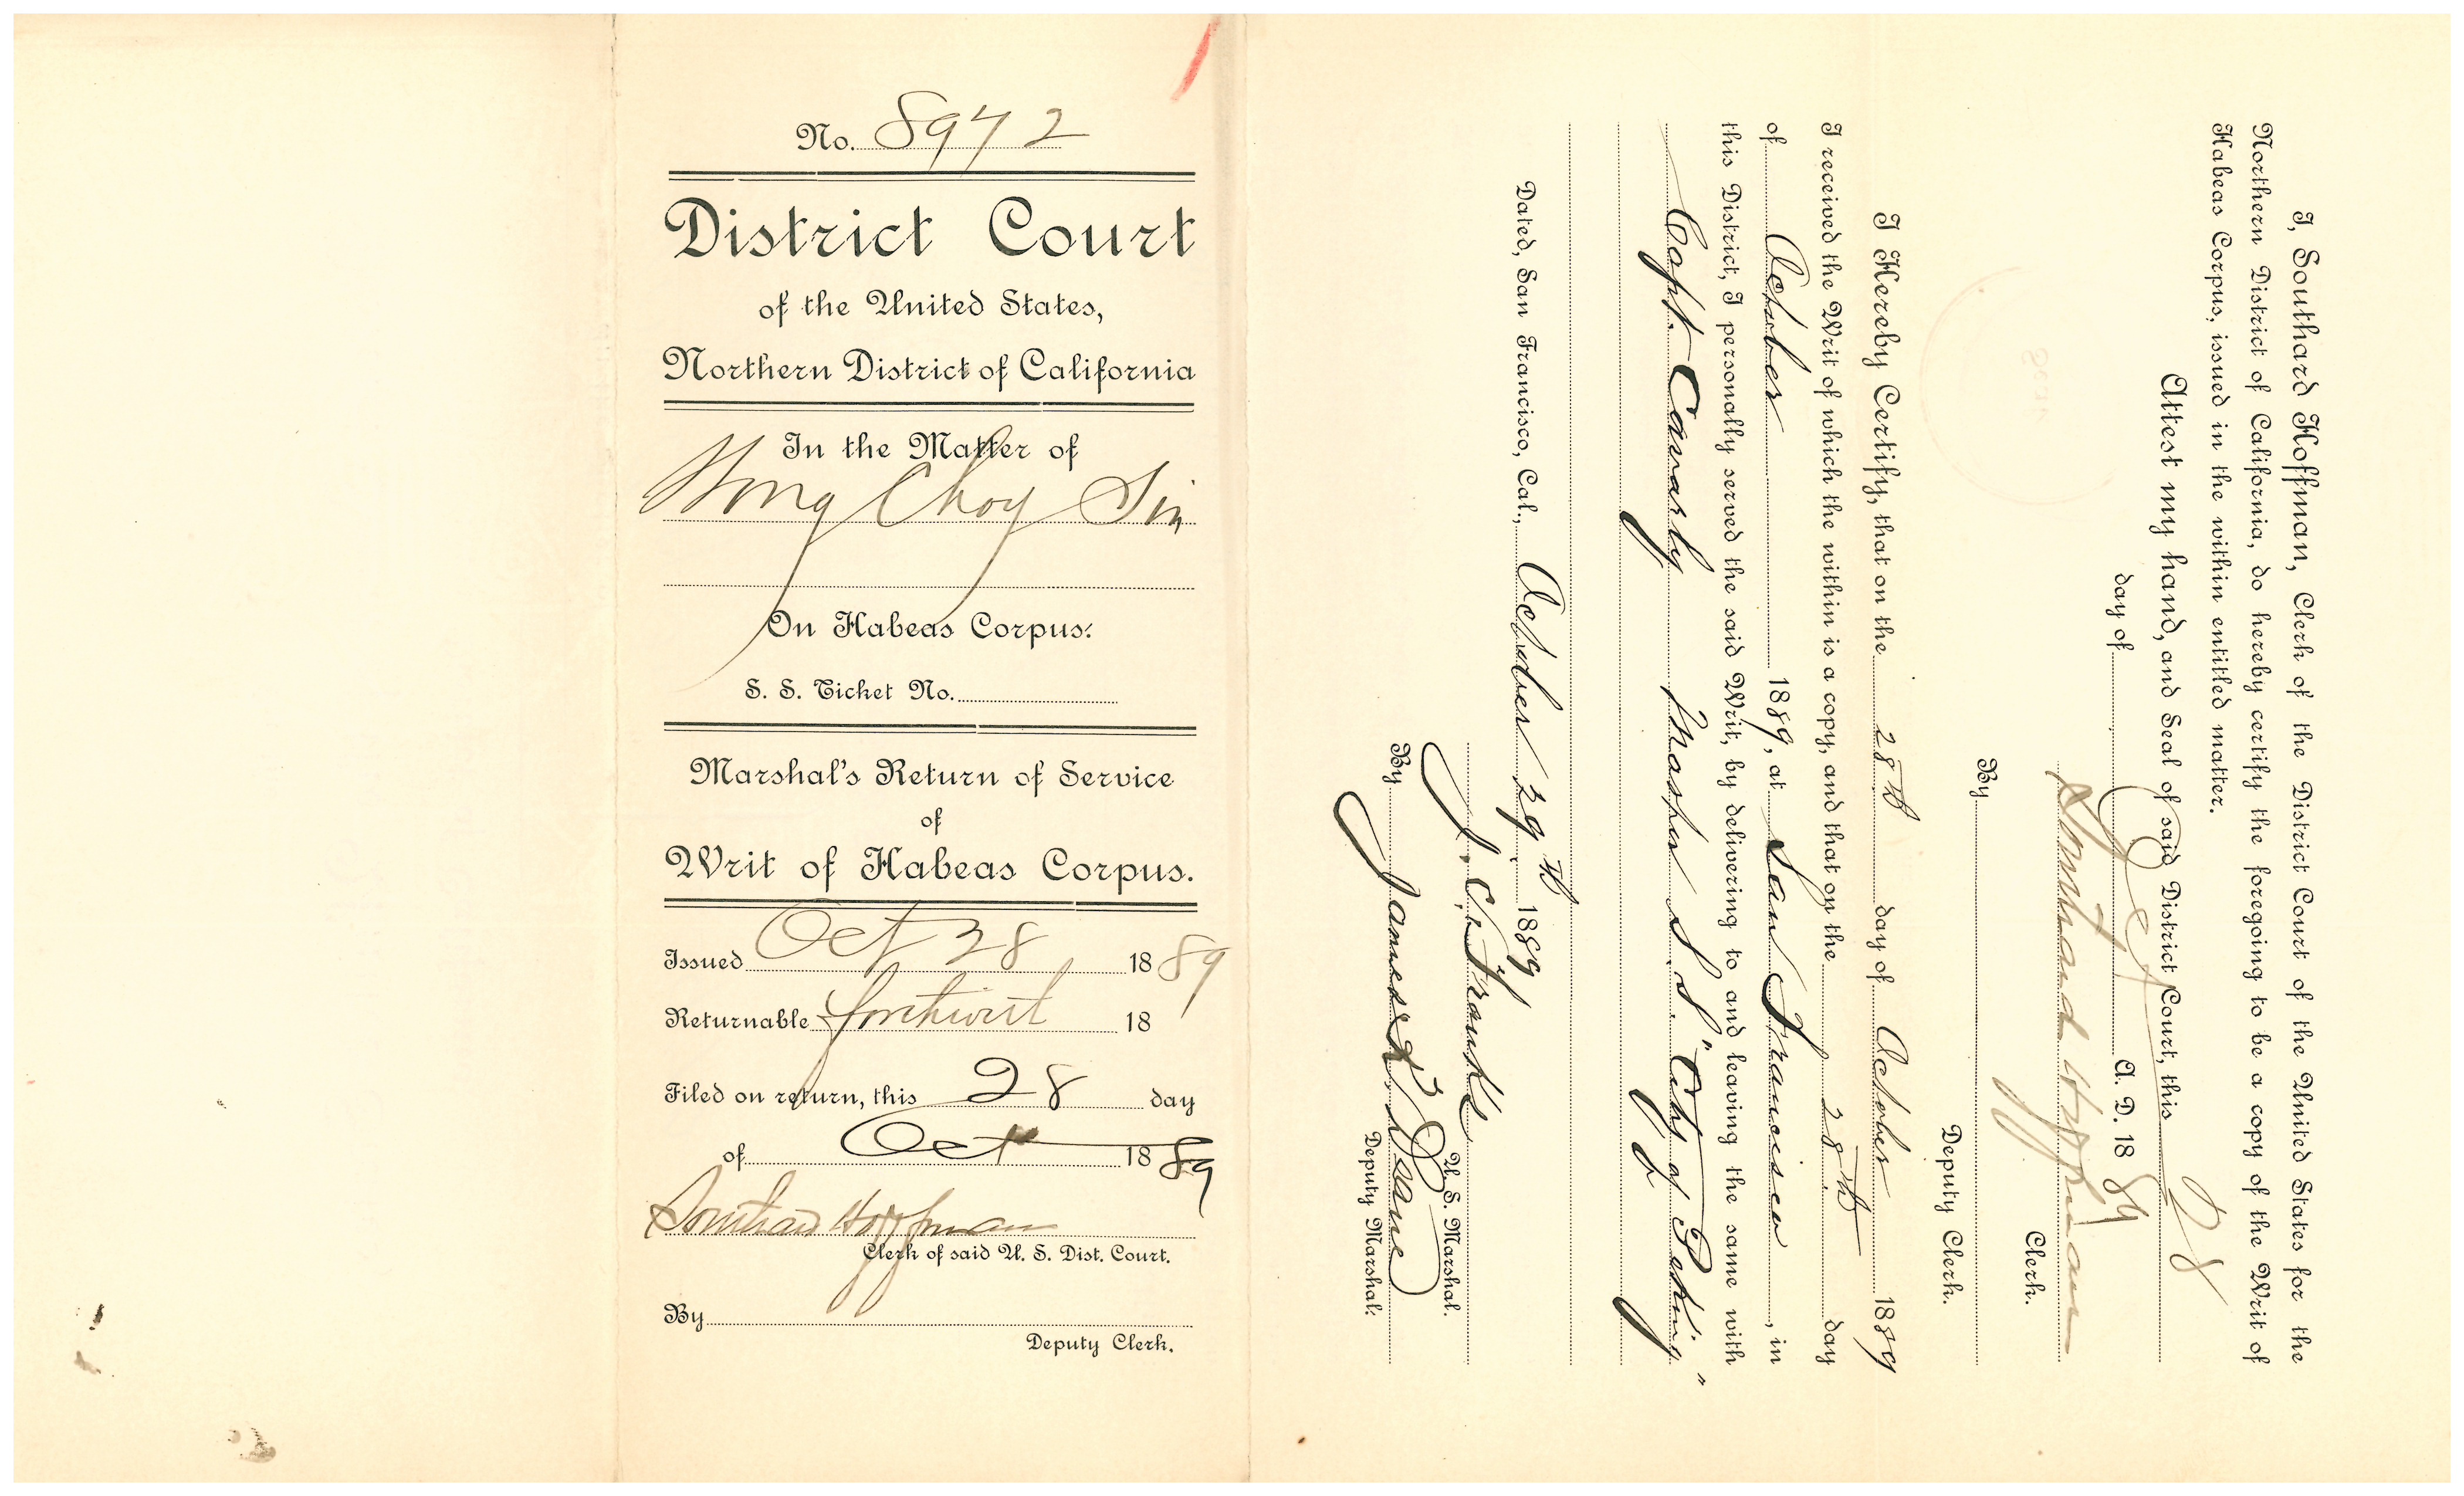 No. 8972
District Court
of the United States,
Northern District of California
In the Matter of
Wong Choy Sin
On Habeas Corpus.
S. S. Ticket No.
Marshal's Return of Service
of
Writ of Habeas Corpus.
Issued Oct 28 1889
Returnable forthwith 18
Filed on return, this 28 day
of Oct 1889
Southard Hoffman
Clerk of said U. S. Dist. Court.
By
Deputy Clerk.
I, Southard Hoffman, Clerk of the District Court of the United States for the
Northern District of California, do hereby certify the foregoing to be a copy of the Writ of
Habeas Corpus, issued in the within entitled matter.
Attest my hand, and Seal of said District Court, this 28
day of Oct A. D. 1889
Southard Hoffman
Clerk.
By
Deputy Clerk.
I Hereby Certify, that on the 28th day of October 1889
I received the Writ of which the within is a copy, and that on the 28th day
of October 1889, at San Francisco, in
this District, I personally served the said Writ, by delivering to and leaving the same with
Capt. Cavarly Master S. S. "City of Peking"
Dated, San Francisco, Cal., October 29th 1889
J. C. Franks
U. S. Marshal.
By James
Deputy Marshal.